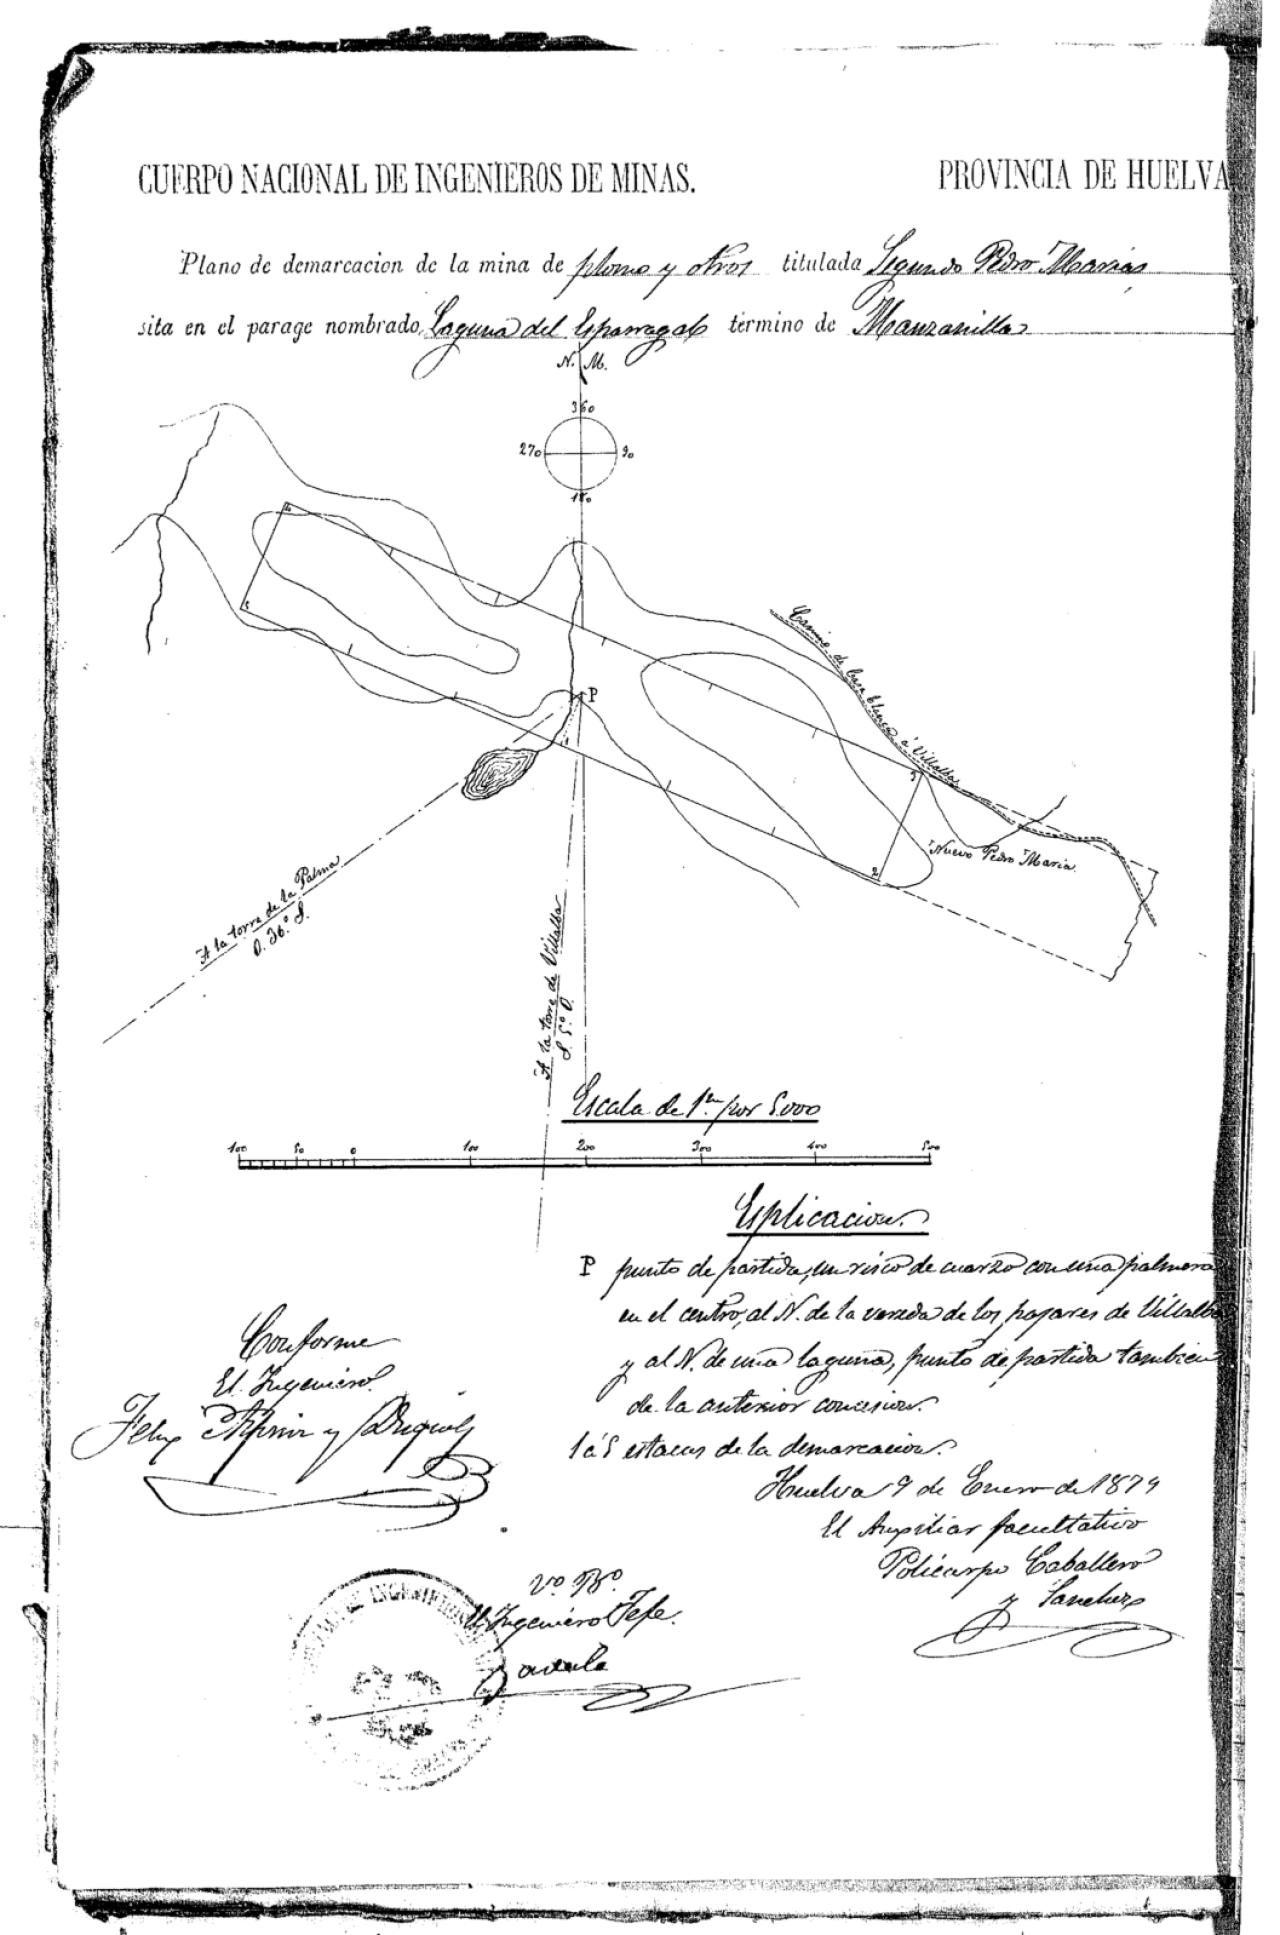 CUERPO NACIONAL DE INGENIEROS DE MINAS.
PROVINCIA DE HUELVA
Plano de demarcacion de la mina de plomo y otros titulada Segundo Pedro Maria
sita en el parage nombrado Laguna del Esparragal término de Manzanilla
N. M.
360
270
90
180
4
5
P
1
3
2
Camino de Casa blanca á Villalba
Nuevo Pedro Maria
A la torre de la Palma
O. 36.º S.
A la torre de Villalba
S 5.º O.
Escala de 1.m por 5000
100 50 0 100 200 300 400 500
Esplicacion.
P punto de partida, un risco de cuarzo con una palmera
en el centro, al N. de la vereda de los pajares de Villalba
y al N. de una laguna, punto de partida tambien
de la anterior concesion.
1 á 5 estacas de la demarcacion.
Huelva 9 de Enero de 1879
El Auxiliar facultativo
Policarpo Caballero
y Sanchez
Conforme
El Ingeniero.
Felix
y
Vº Bº
El Ingeniero Jefe.
DE INGENIEROS